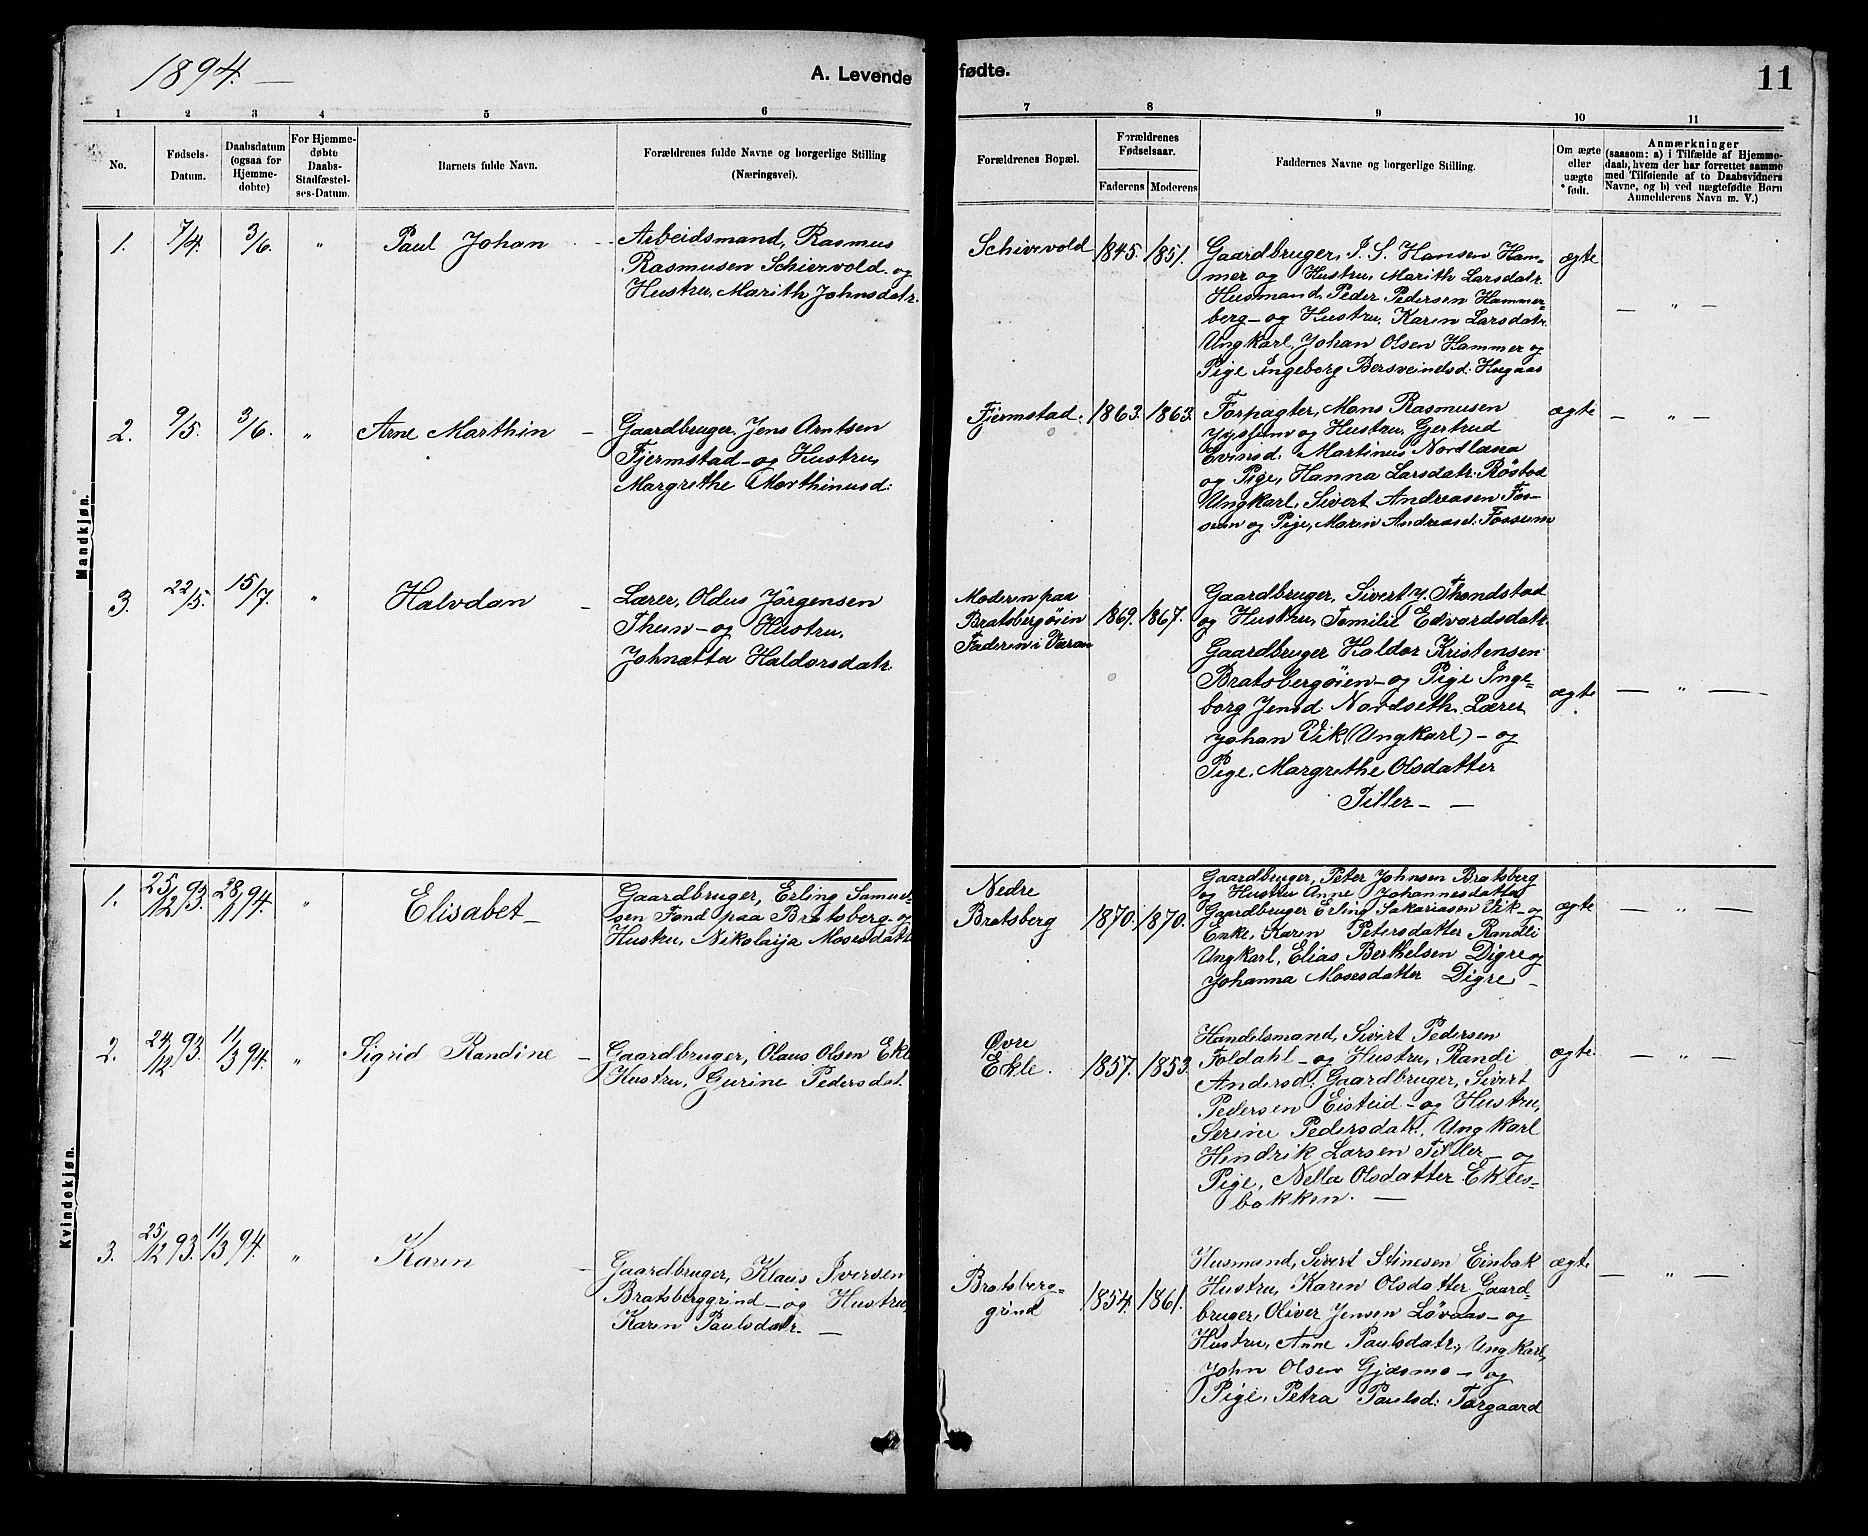 1894. —
A. Levende fødte.
11
1 2 3 4 5 6 7 8 9 10 11
No.
Fødsels-
Datum.
Daabsdatum
(ogsaa for
Hjemme-
døbte)
For Hjemme-
døbte
Daabs-
Stadfæstel-
ses-Datum.
Barnets fulde Navn.
Forældrenes fulde Navne og borgerlige Stilling
(Næringsvei).
Forældrenes Bopæl.
Forældrenes
Fødselsaar.
Faderens Moderens
Faddernes Navne og borgerlige Stilling.
Om ægte
eller
uægte
født.
Anmærkninger
(saasom: a) i Tilfælde af Hjemme-
daab, hvem der har forrettet samme
med Tilføiende af to Daabsvidners
Navne, og b) ved uægtefødte Børn
Anmelderens Navn m. V.)
Mandkjøn.
1. 7/4. 3/6. " Paul Johan
Arbeidsmand, Rasmus
Rasmusen Schiezvold og
Hustru, Marith Johnsdatr.
Schiezvold 1845. 1851.
Gaardbruger, I. S. Hansen Ham-
mer og Hustru, Marith Larsdatr.
Husmand, Peder Pedersen Hammer-
berg – og Hustru, Karen Larsdatr.
Ungkarl, Johan Olsen Hammer og
Pige Ingeborg Bersveindsd. Hugaas
ægte — " —
2. 9/5. 3/6. " Arne Marthin —
Gaardbruger, Jens Arntsen
Fjermstad – og Hustru,
Margrethe Marthinusd:
Fjermstad. 1863. 1863.
Forpagter, Mons Rasmusen
og Hustru, Gertrud
Evensd: Martinus Nordlana
og Pige, Hanna Larsdatr: Röstad
Ungkarl, Sivert Andreasen Fos-
sum og Pige, Maren Andreasd: Fossum
ægte — " —
3. 22/5. 15/7. " Halvdan —
Lærer, Oldus Jörgensen
Thun – og Hustru,
Johnætte Haldorsdatr:
Moderen paa
Bratsbergöien
Faderen i Væran
1869. 1867.
Gaardbruger, Sivert J. Thondstad
og Hustru, Tomilie Edvardsdatr.
Gaardbruger Haldor Kristensen
Bratsbergöien – og Pige Inge-
borg Jensd: Nordseth. Lærer
Johan Vik (Ungkarl) – og
Pige, Margrethe Olsdatter
Tiller — —
ægte — " —
Kvindekjøn.
1. 25/12 93. 28/1 94. " Elisabet —
Gaardbruger, Erling Samuel-
sen Fond paa Bratsberg – og
Hustru, Nikolaija Mosesdatr
Nedre
Bratsberg 1870. 1870.
Gaardbruger, Peter Johnsen Bratsberg
og Hustru Anne Johannesdatter
Gaardbruger Erling Sakariasen Vik – og
Enke, Karen Petersdatter Randli
Ungkarl, Elias Berthelsen Digre og
Johanna Mosesdatter Digre —
ægte — " —
2. 24/12 93. 11/3 94. " Sigrid Randine —
Gaardbruger, Olaus Olsen Ekl
Hustru, Gurine Pedersdat.
Øvre
Ekle. 1857. 1853.
Handelsmand, Sivert Pedersen
Foldahl – og Hustru, Randi
Andersd: Gaardbruger, Sivert
Pedersen Eisteid – og Hustru,
Serine Pedersdatr. Ungkarl
Hendrik Larsen Tiller – og
Pige, Nella Olsdatter Ekles-
bakken. —
ægte. — " —
3. 25/12 93. 11/3 94. " Karen —
Gaardbruger, Klaus Iversen
Bratsberggrind – og Hustru,
Karen Paulsdatr. —
Bratsberg-
grind 1854. 1861.
Husmand, Sivert Stinesen Einbak
Hustru, Karen Olsdatter Gaard-
bruger, Oliver Jensen Løvaas – og
Hustru, Anne Paulsdatr., Ungkarl,
John Olsen Gjæsmo – og
Pige, Petra Paulsd: Torgaard
ægte — " —